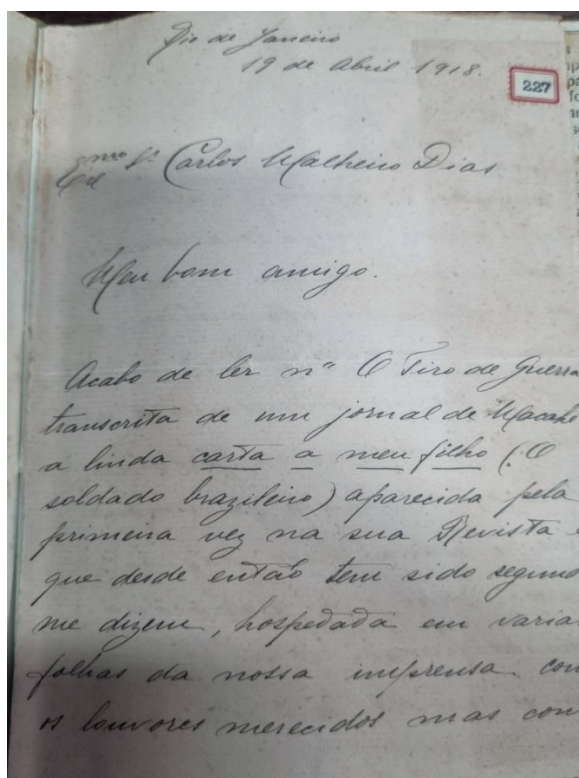 Rio de Janeiro
19 de Abril 1918.
227
Exmo Sr. Carlos Malheiro Dias
Meu bom amigo.
Acabo de ler n" O Tiro de Guerra
transcrita de um jornal de Macahé
a linda carta a meu filho (O
soldado brazileiro) aparecida pela
primeira vez na sua Revista e
que desde então tem sido segundo
me dizem, hospedada em varias
folhas da nossa imprensa com
os louvores merecidos mas com